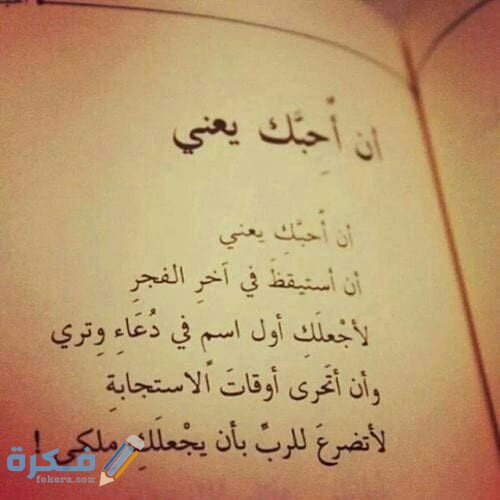 أن أُحِبَّك يعني
أن أُحبَّكِ يعني
أن أستيقظَ في آخرِ الفجرِ
لأجْعلَكِ أول اسمٍ في دُعَاءِ وِتري
وأن أتَحرى أوقاتَ الاستجابةِ
لأتضرعَ للربِّ بأن يجْعلَكِ ملكي !
فكرة
fekera.com